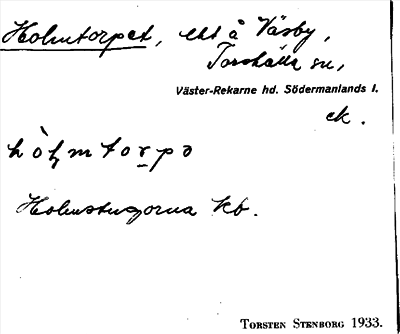 Holmtorpet, ett å Väsby,
Torshälla sn,
Väster-Rekarne hd. Södermanlands l.
ek.
hòlmtorpə
Holmstugorna kb.
TORSTEN STENBORG 1933.